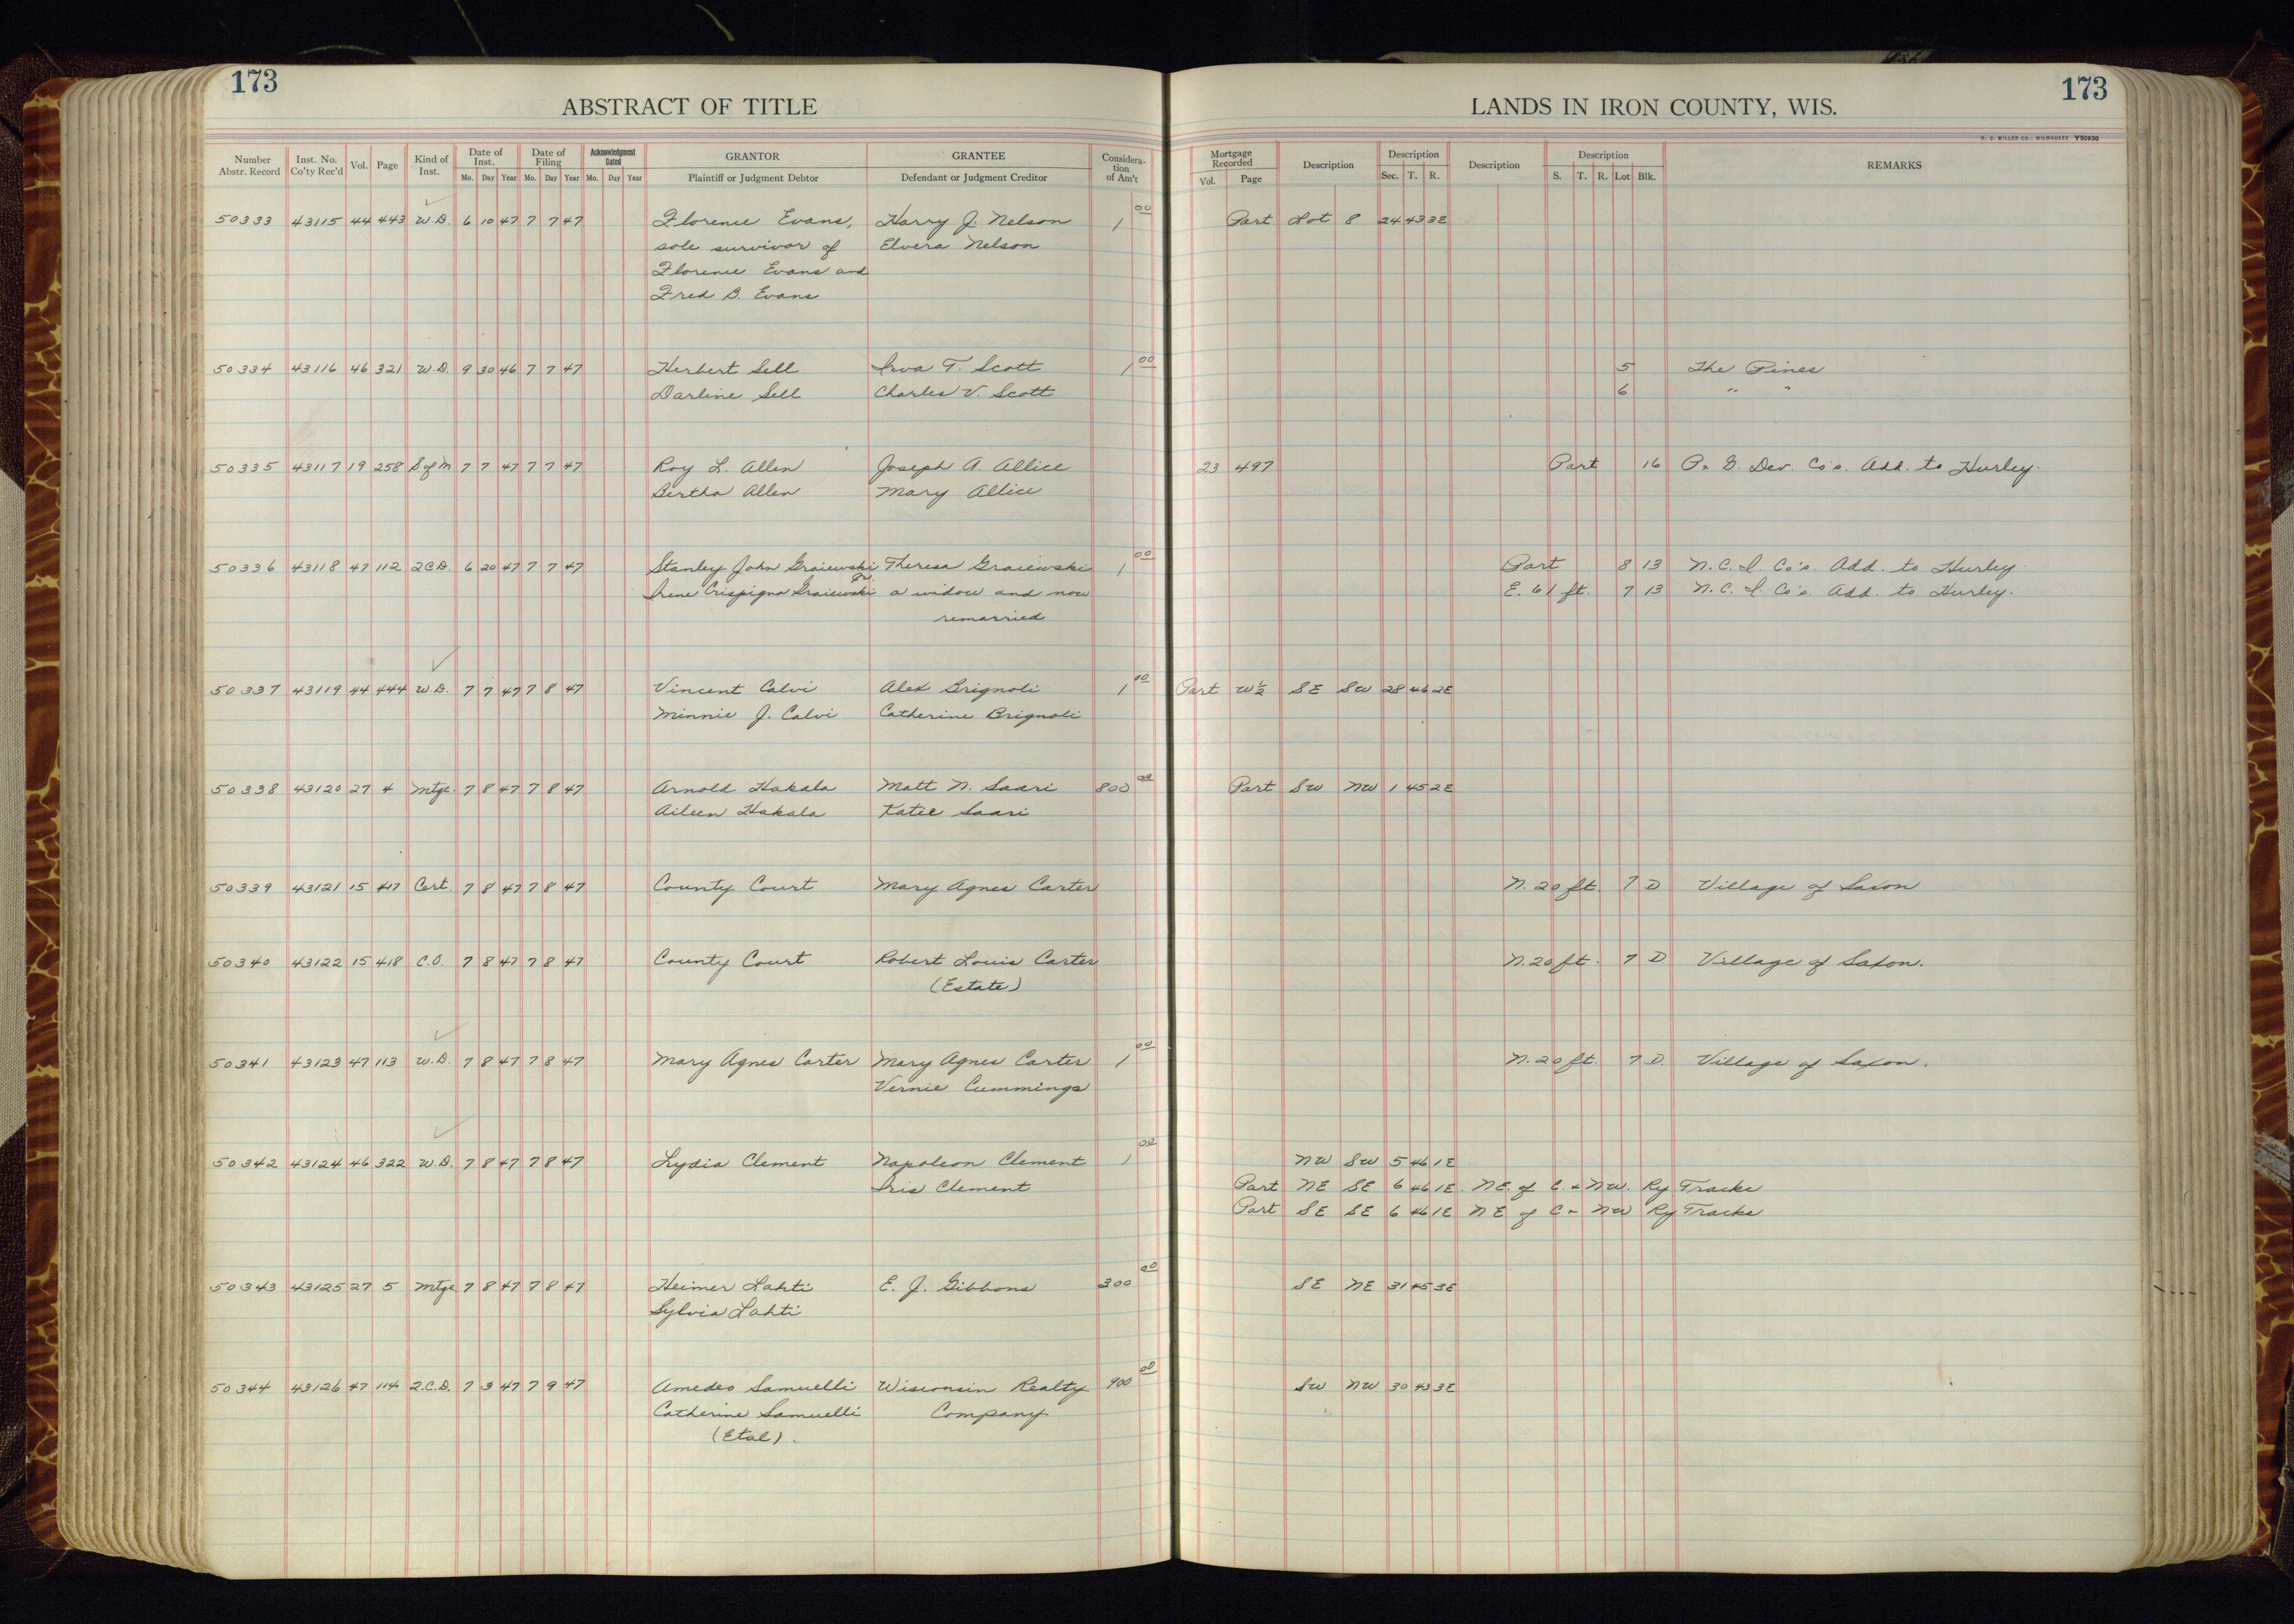 173
ABSTRACT OF TITLE
Number Abstr. Record
Inst. No. Co'ty Rec'd
Vol.
Page
Kind of Inst.
Date of Inst.
Mo. Day Year
Date of Filing
Mo. Day Year
Acknowledgment Dated
Mo. Day Year
GRANTOR
Plaintiff or Judgment Debtor
GRANTEE
Defendant or Judgment Creditor
Considera-tion of Am't
LANDS IN IRON COUNTY, WIS.
173
H. C. MILLER CO., MILWAUKEE V50930
Mortgage Recorded
Vol. Page
Description
Description
Sec. T. R.
Description
Description
S. T. R. Lot Blk.
REMARKS
50333 43115 44 443 W.D. 6 10 47 7 7 47 Florence Evans, Harry J. Nelson 1 00 Part Lot 8 24 43 3E
sole survivor of Elvera Nelson
Florence Evans and
Fred B. Evans
50334 43116 46 321 W.D. 9 30 46 7 7 47 Herbert Sell Irva T. Scott 1 00 5 The Pines
Darline Sell Charles V. Scott 6 " "
50335 43117 19 258 S of M 7 7 47 7 7 47 Roy L. Allen Joseph A. Allice 23 497 Part 16 P. & G. Dev. Co's. Add. to Hurley.
Bertha Allen Mary Allice
50336 43118 47 112 2CD. 6 20 47 7 7 47 Stanley John Graiewski Jr. Theresa Graiewski 1 00 Part 8 13 N.C.I. Co's. Add. to Hurley.
Irene Crispigna Graiewski a widow and now E. 61 ft. 7 13 N.C.I. Co's. Add. to Hurley.
remarried
50337 43119 44 444 W.D. 7 7 47 7 8 47 Vincent Calvi Alex Brignoli 1 00 Part W½ SE SW 28 46 2E
Minnie J. Calvi Catherine Brignoli
50338 43120 27 4 Mtge. 7 8 47 7 8 47 Arnold Hakala Matt N. Saari 800 00 Part SW NW 1 45 2E
Aileen Hakala Katie Saari
50339 43121 15 417 Cert. 7 8 47 7 8 47 County Court Mary Agnes Carter N. 20 ft. 7 D Village of Saxon
50340 43122 15 418 C.O. 7 8 47 7 8 47 County Court Robert Louis Carter N. 20 ft. 7 D Village of Saxon.
(Estate)
50341 43123 47 113 W.D. 7 8 47 7 8 47 Mary Agnes Carter Mary Agnes Carter 1 00 N. 20 ft. 7 D. Village of Saxon.
Vernie Cummings
50342 43124 46 322 W.D. 7 8 47 7 8 47 Lydia Clement Napoleon Clement 1 00 NW SW 5 46 1E
Iris Clement Part NE SE 6 46 1E. NE. of C. & NW. Ry Tracks
Part SE SE 6 46 1E NE of C & NW Ry Tracks
50343 43125 27 5 Mtge 7 8 47 7 8 47 Heimer Lahti E. J. Gibbons 300 00 SE NE 31 45 3E
Sylvia Lahti
50344 43126 47 114 2.C.D. 7 3 47 7 9 47 Amedeo Samuelli Wisconsin Realty 900 00 SW NW 30 43 3E
Catherine Samuelli Company
(Etal).